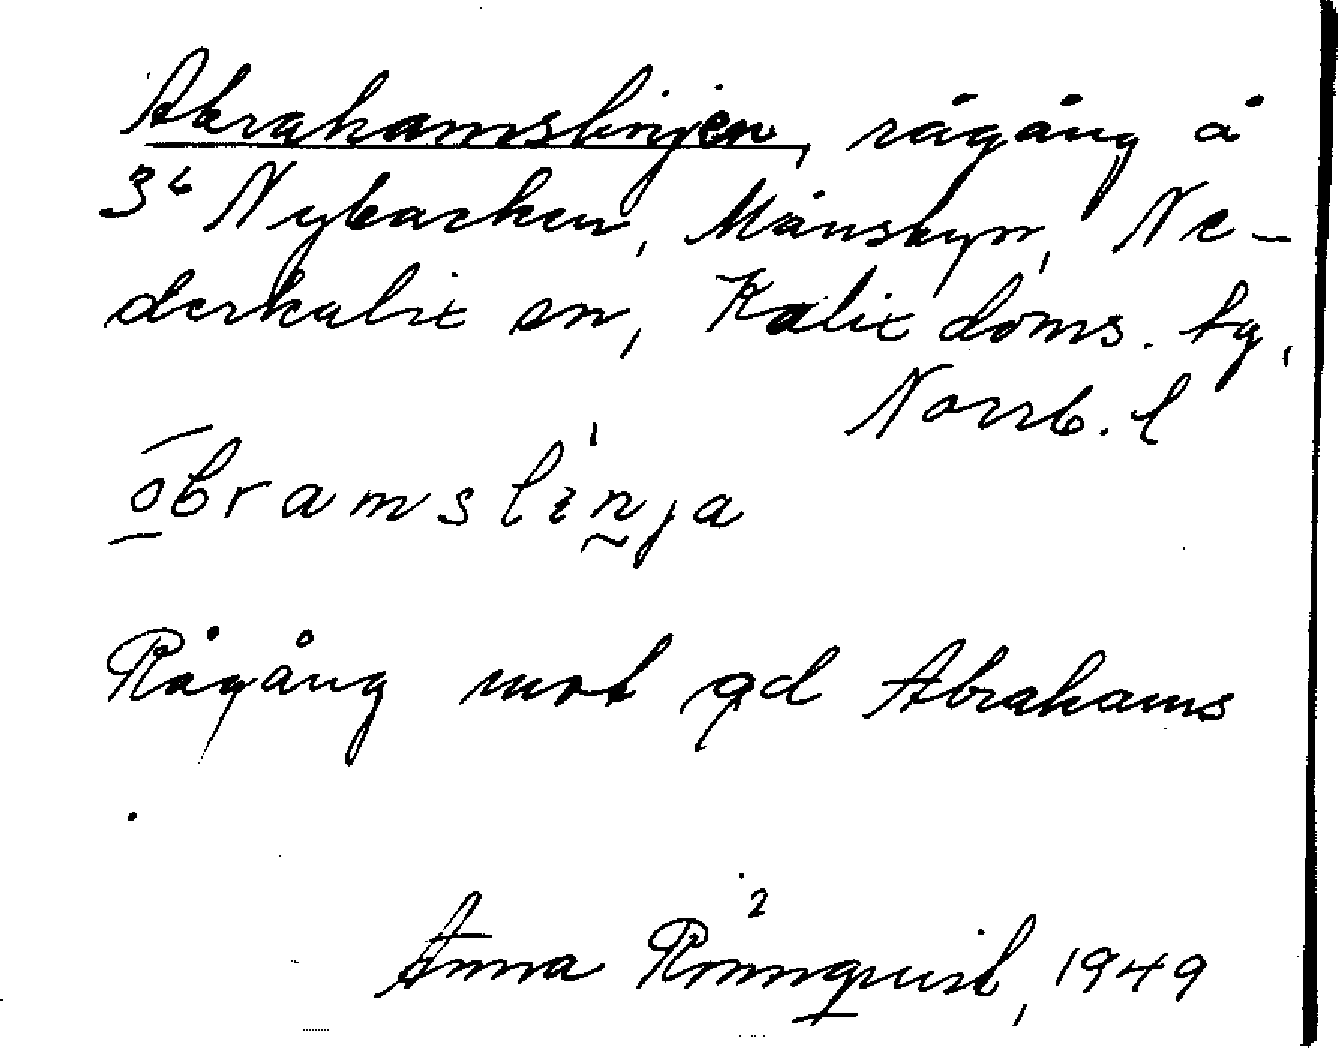 Abrahamslinjen, rågång å
3⁶ Nybacken, Månsbyn, Ne-
derkalix sn, Kalix doms. tg,
Norrb. l
öbramslinja
Rågång mot gd Abrahams
Anna Rönnquist, 1949